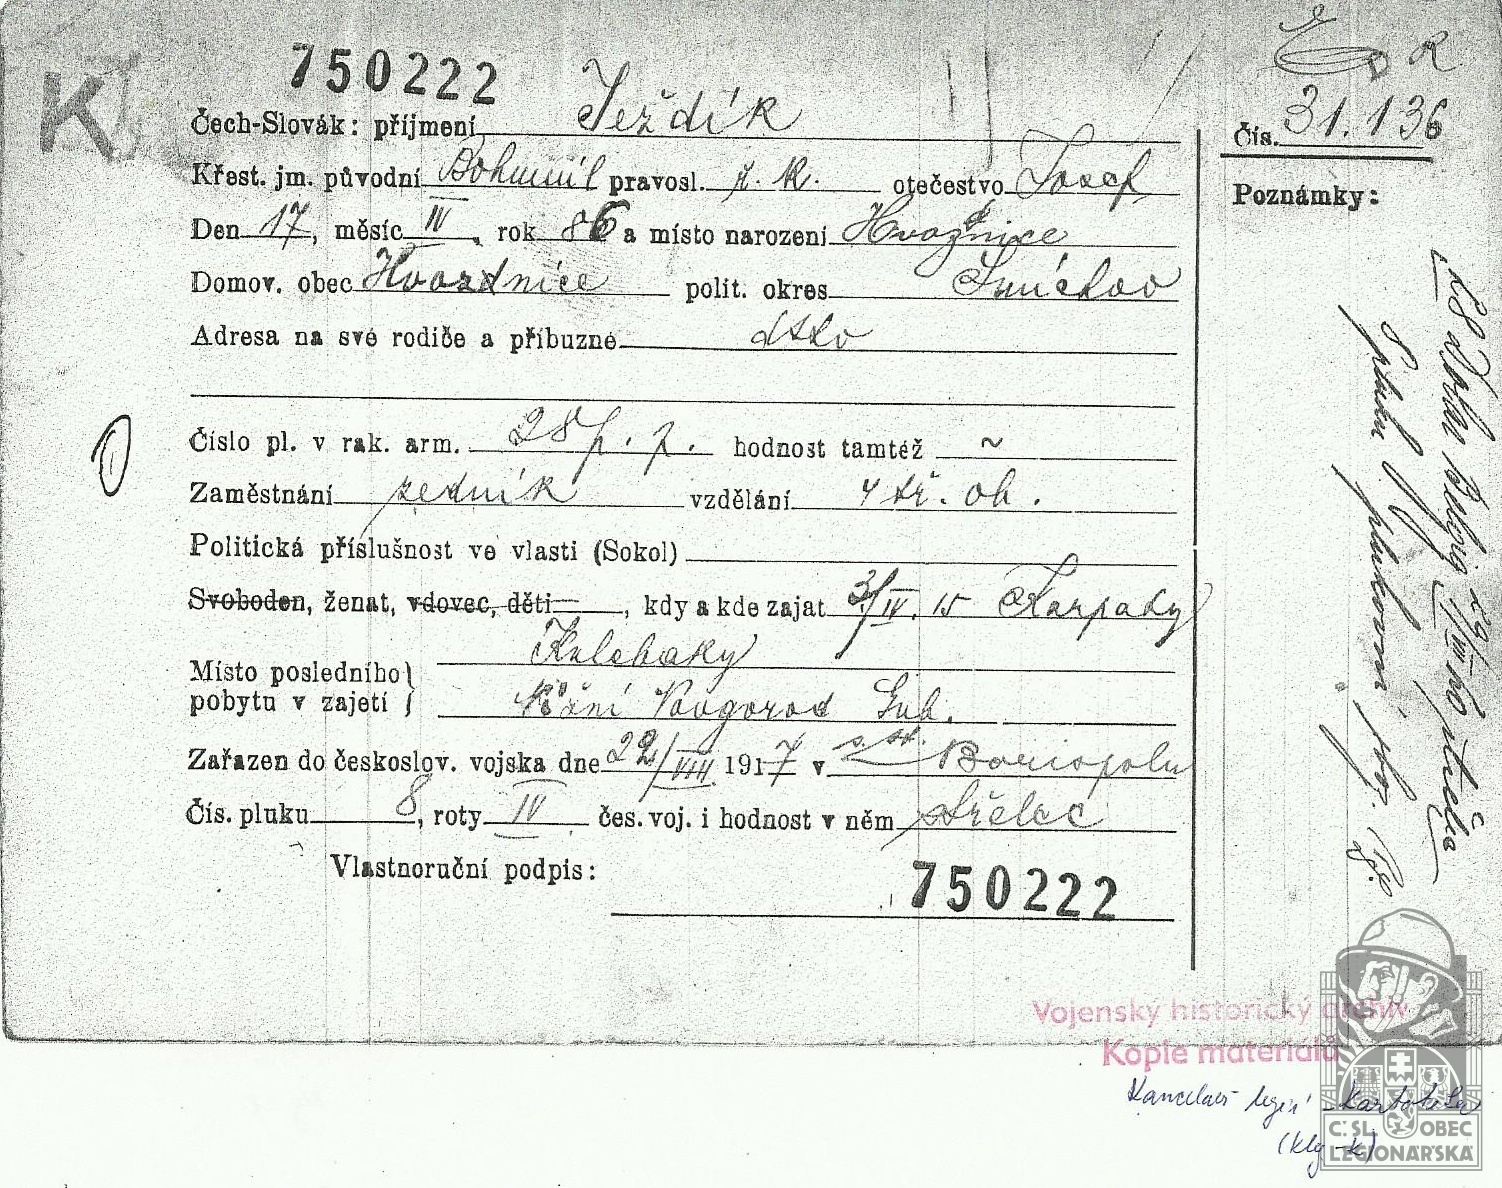 K
750222
Čech-Slovák: příjmení Ježdík
Křest. jm. původní Bohumil pravosl. ř. k. otečestvo Josef
Den 17, měsíc IV, rok 86 a místo narození Hvozdnice
Domov. obec Hvozdnice polit. okres Smíchov
Adresa na své rodiče a příbuzné dtto
Číslo pl. v rak. arm. 28 p. p. hodnost tamtéž ~
Zaměstnání zedník vzdělání 4 tř. ob.
Politická příslušnost ve vlasti (Sokol)
Svoboden, ženat, vdovec, děti — , kdy a kde zajat 3/IV. 15 Karpaty
Místo posledního pobytu v zajetí } Kulebaky
Nižní Novgorod Gub.
Zařazen do českoslov. vojska dne 22/VIII 1917 v Borispolu
Čís. pluku 8, roty IV čes. voj. i hodnost v něm střelec
Vlastnoruční podpis:
750222
R
Čís. 31.136
Poznámky:
Vojenský historický archiv
Kopie materiálu
Kancelář legií - kartotéka
(klg-k)
Č.SL. OBEC
LEGIONÁŘSKÁ